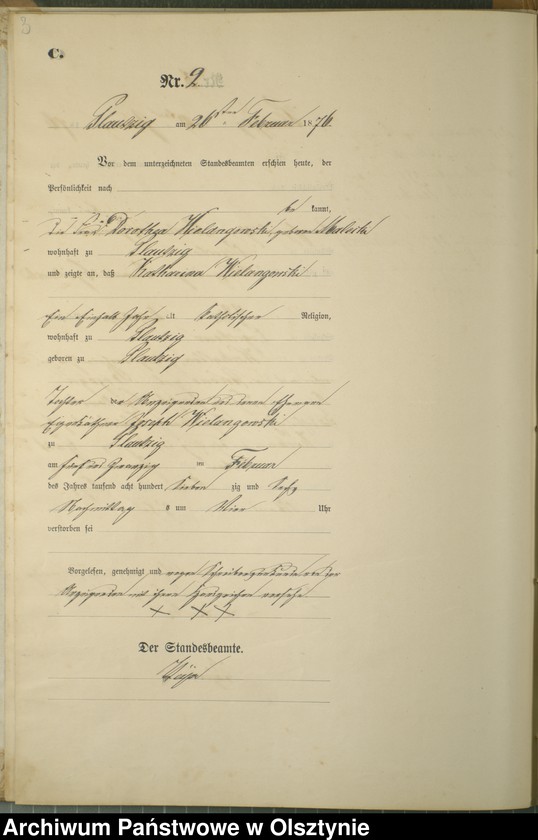 3
C.
Nr. 2
Plautzig am 26ten Februar 1876.
Vor dem unterzeichneten Standesbeamten erschien heute, der
Persönlichkeit nach
be kannt,
Dorothea Wielangowski, geborene
wohnhaft zu Plautzig
und zeigte an, daß Katharina Wielangowski
Ein einhalb Jahr alt katholischer Religion,
wohnhaft zu Plautzig
geboren zu Plautzig
Tochter der Anzeigenden und deren Ehemann
Joseph Wielangowski
zu Plautzig
am fünf und zwanzig ten Februar
des Jahres tausend acht hundert sieben zig und sechs
Nachmittag s um Vier Uhr
verstorben sei
Vorgelesen, genehmigt und wegen Schreibensunkunde von der
Anzeigenden mit ihrem Handzeichen versehen
+ + +
Der Standesbeamte.
Archiwum Państwowe w Olsztynie